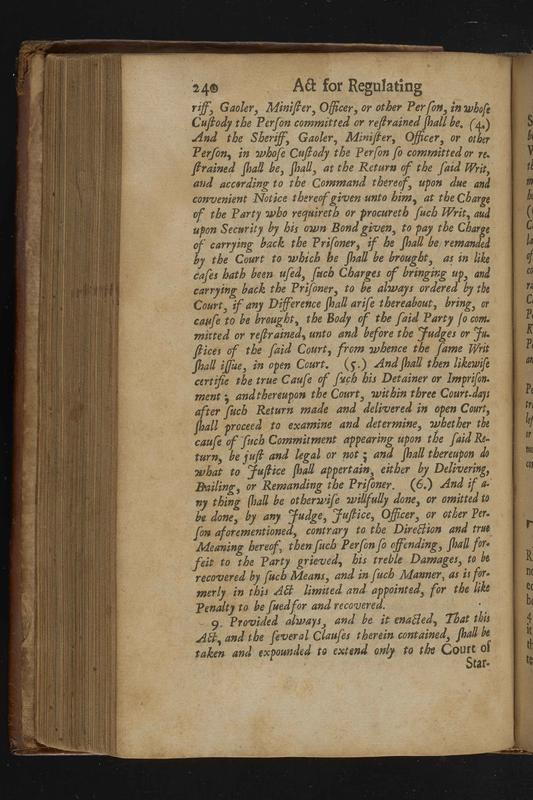 240 Act for Regulating
riff, Gaoler, Miniſter, Officer, or other Perſon, in whoſe
Cuſtody the Perſon committed or reſtrained ſhall be. (4.)
And the Sheriff, Gaoler, Miniſter, Officer, or other
Perſon, in whoſe Cuſtody the Perſon ſo committed or re-
ſtrained ſhall be, ſhall, at the Return of the ſaid Writ,
and according to the Command thereof, upon due and
convenient Notice thereof given unto him, at the Charge
of the Party who requireth or procureth ſuch Writ, aud
upon Security by his own Bond given, to pay the Charge
of carrying back the Priſoner, if he ſhall be remanded
by the Court to which he ſhall be brought, as in like
caſes hath been uſed, ſuch Charges of bringing up, and
carrying back the Priſoner, to be always ordered by the
Court, if any Difference ſhall ariſe thereabout, bring, or
cauſe to be brought, the Body of the ſaid Party ſo com-
mitted or reſtrained, unto and before the Judges or Ju-
ſtices of the ſaid Court, from whence the ſame Writ
ſhall iſſue, in open Court. (5.) And ſhall then likewiſe
certifie the true Cauſe of ſuch his Detainer or Impriſon-
ment; and thereupon the Court, within three Court-days
after ſuch Return made and delivered in open Court,
ſhall proceed to examine and determine, whether the
cauſe of ſuch Commitment appearing upon the ſaid Re-
turn, be juſt and legal or not; and ſhall thereupon do
what to Juſtice ſhall appertain, either by Delivering,
Bailing, or Remanding the Priſoner. (6.) And if a-
ny thing ſhall be otherwiſe willfully done, or omitted to
be done, by any Judge, Juſtice, Officer, or other Per-
ſon aforementioned, contrary to the Direction and true
Meaning hereof, then ſuch Perſon ſo offending, ſhall for-
feit to the Party grieved, his treble Damages, to be
recovered by ſuch Means, and in ſuch Manner, as is for-
merly in this Act limited and appointed, for the like
Penalty to be ſued for and recovered.
9. Provided always, and be it enacted, That this
Act, and the ſeveral Clauſes therein contained, ſhall be
taken and expounded to extend only to the Court of
Star-